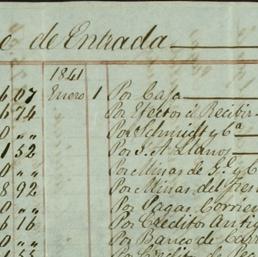 o de Entrada
1841
6 07 Enero 1 Por Caja
6 74 Por Efectos á Recibir
0 „ „ Por Schmidt y Cª
1 52 Por J. A. Llanos
0 „ „ Por Minas de G. y C
8 92 Por Minas del Fres
0 „ „ Por Pagas Corrien
6 16 Por Creditos Antig
0 „ „ Por Banco de